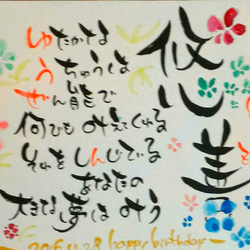 悠善
ゆたかな
うちゅうは
ぜん能で
何でも叶えてくれる
それをしんじている
あなたの
大きな夢は叶う
2016.11.28 happy birthday